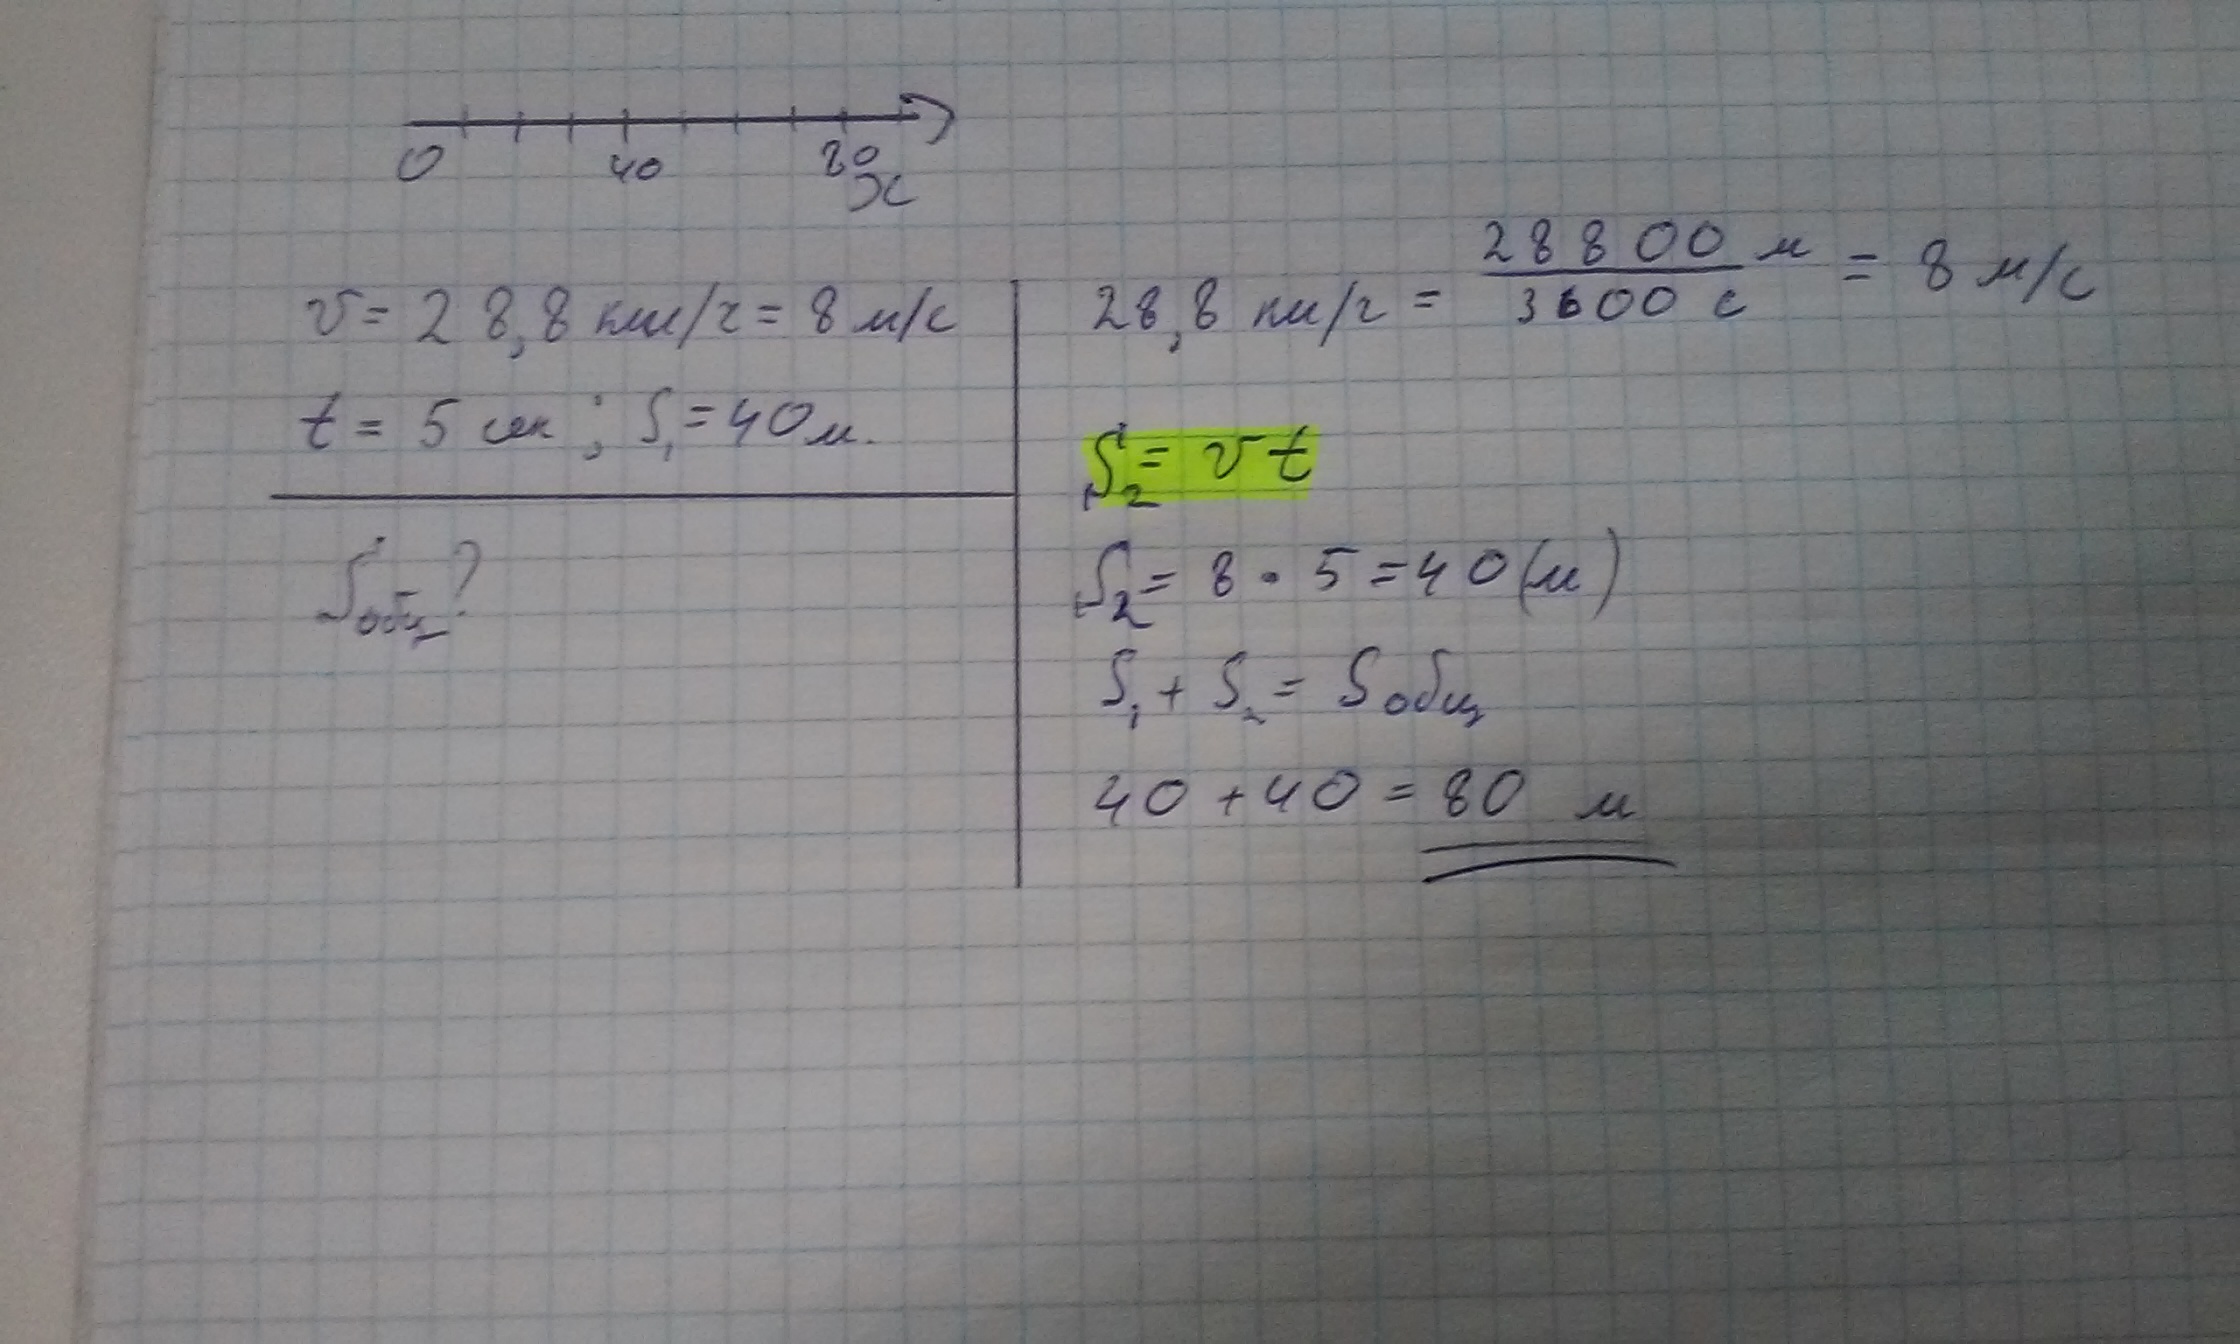 0 40 80
x
v = 28,8 км/ч = 8 м/с
t = 5 сек ; S₁ = 40 м.
Sобщ?
28,8 км/ч = 28800 м / 3600 с = 8 м/с
S₂ = v t
S₂ = 8 · 5 = 40 (м)
S₁ + S₂ = Sобщ
40 + 40 = 80 м